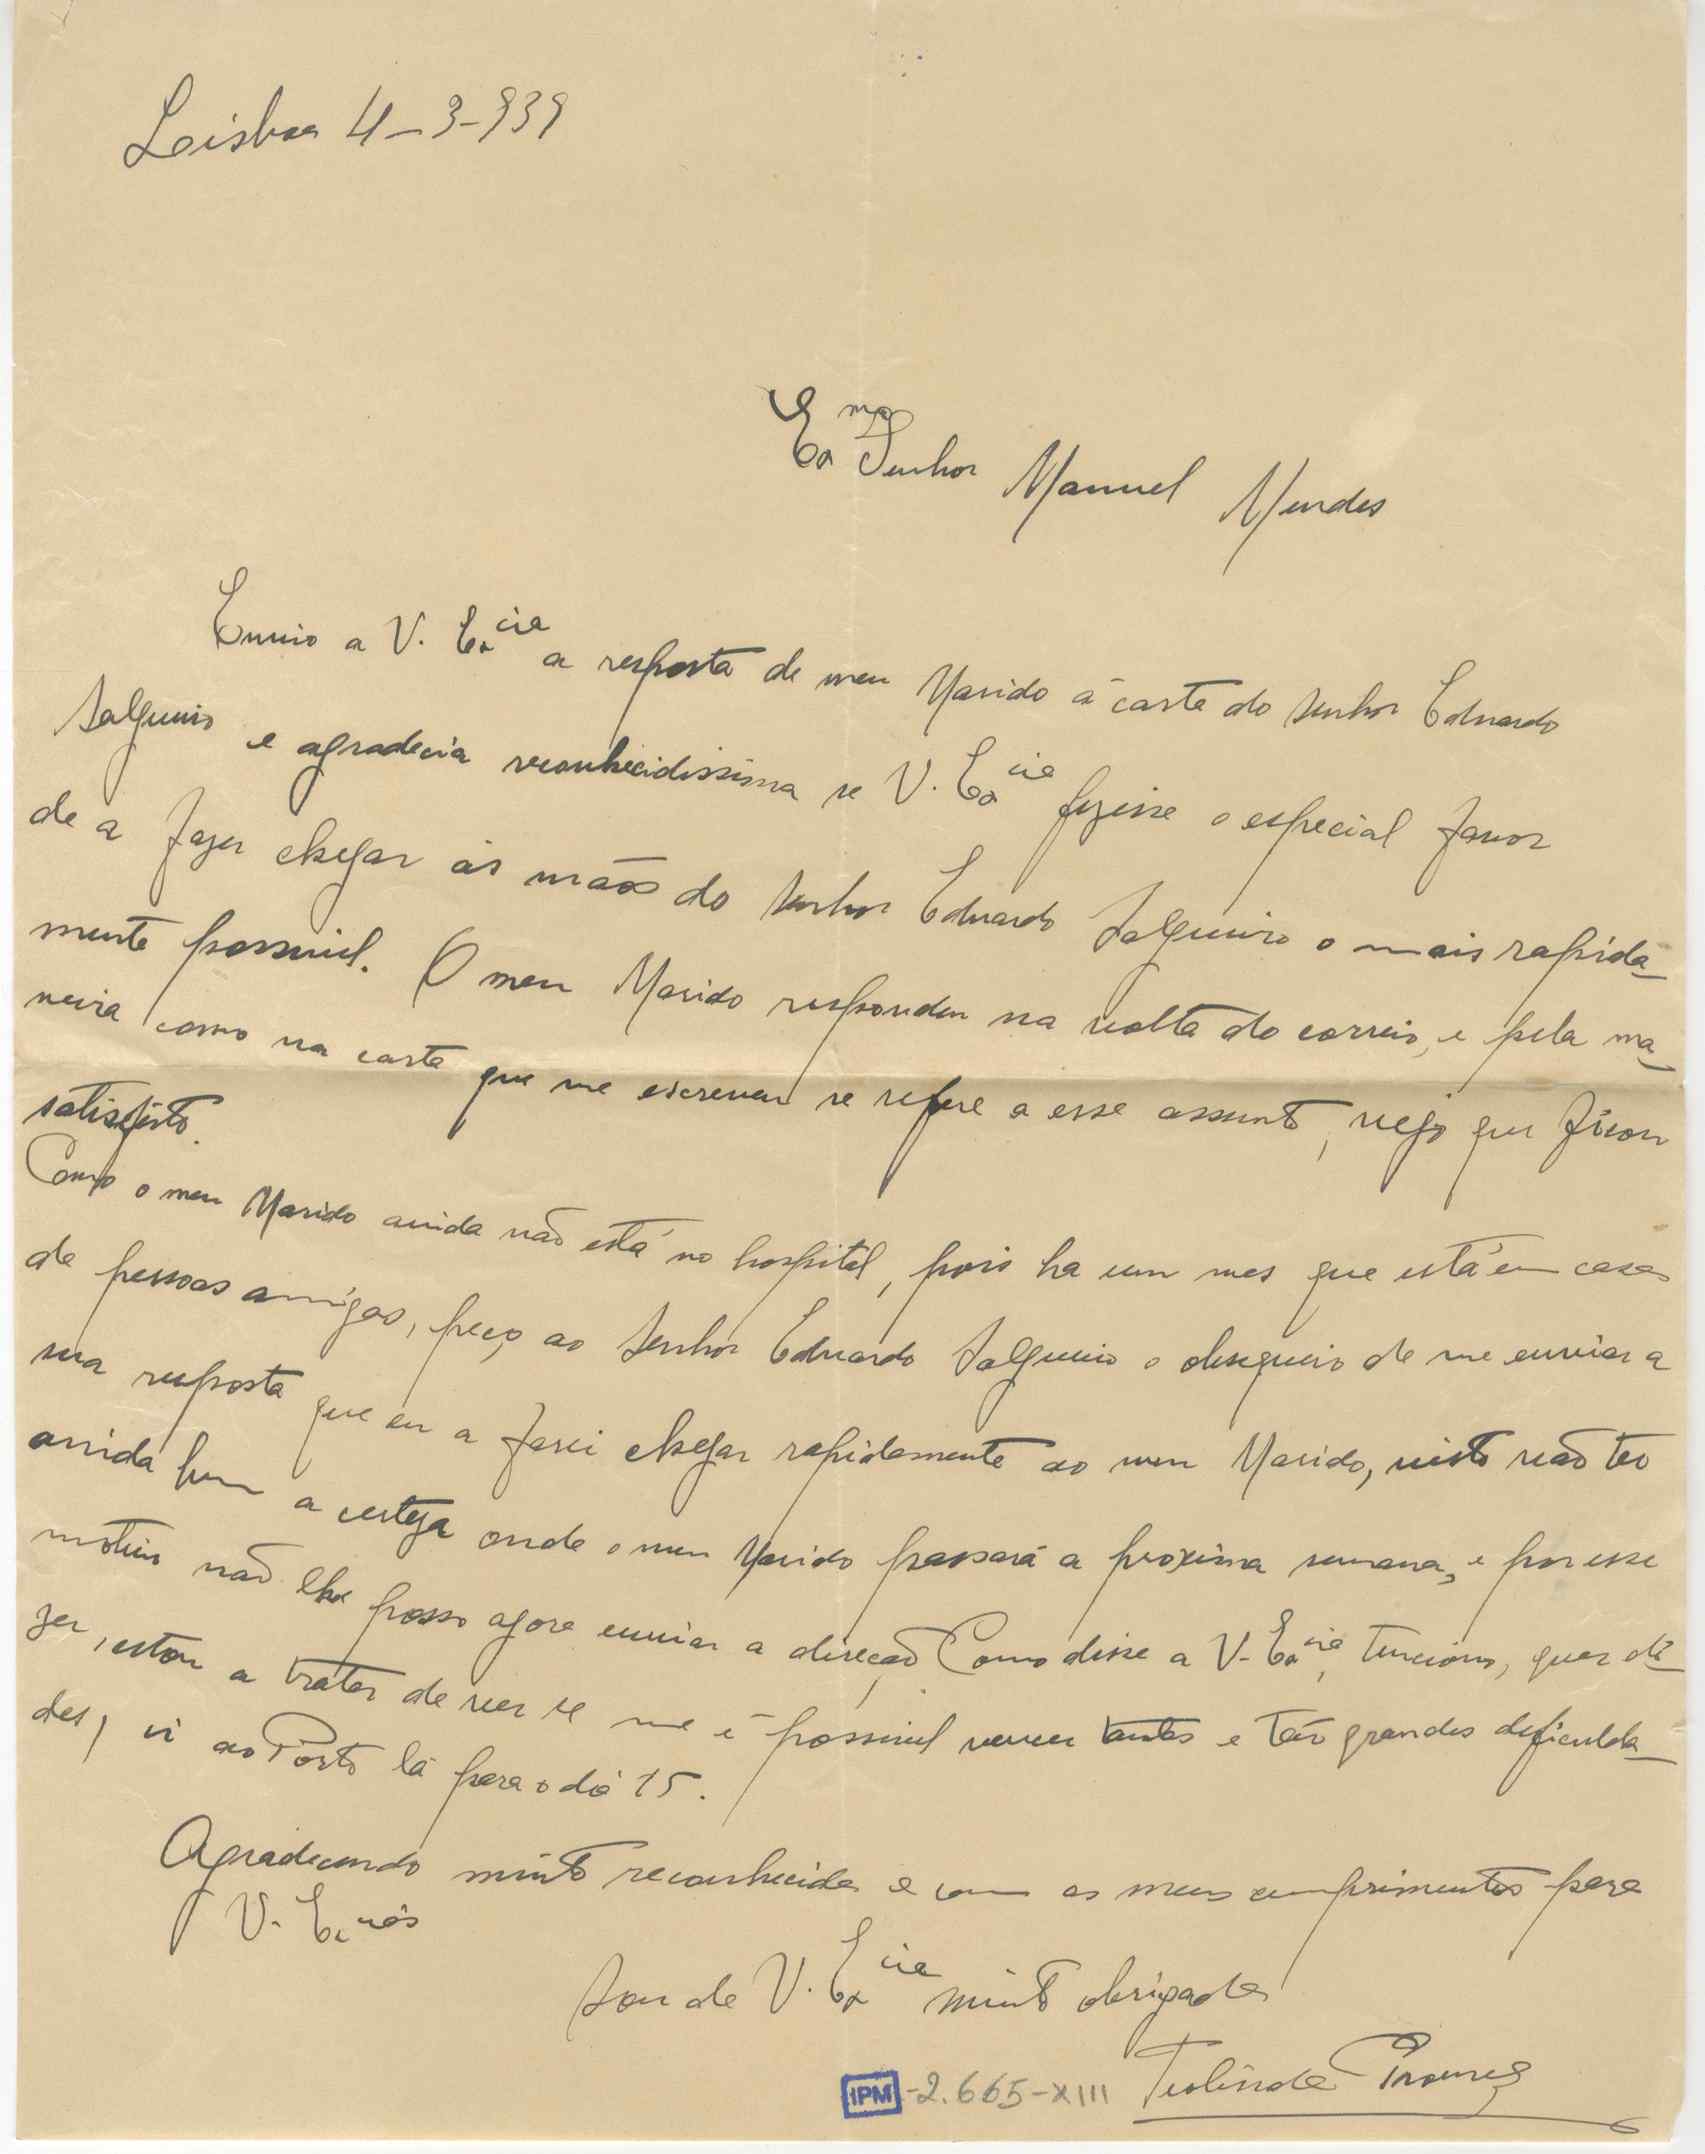 Lisboa 4-3-939
Exmo Senhor Manuel Mendes
Envio a V. Excia a resposta de meu Marido á carta do Senhor Eduardo
Salgueiro e agradecia reconhecidissima se V. Excia fizesse o especial favor
de a fazer chegar ás mãos do Senhor Eduardo Salgueiro o mais rapida-
mente possivel. O meu Marido respondeu na volta do correio, e pela ma-
neira como na carta que me escreveu se refere a esse assunto, vejo que ficou
satisfeito.
Como o meu Marido ainda não está no hospital, pois ha um mes que está em casa
de pessoas amigas, peço ao Senhor Eduardo Salgueiro o obsequio de me enviar a
sua resposta que eu a farei chegar rapidamente ao meu Marido, visto não ter
ainda bem a certeza onde o meu Marido passará a proxima semana, e por esse
motivo não lhe posso agora enviar a direcção Como disse a V. Excia, tenciono, quer di-
zer, estou a tratar de ver se me é possivel vencer tantas e tão grandes deficulda-
des, ir ao Porto lá para o dia 15.
Agradecendo muito reconhecida e com os meus cumprimentos para
V. Ecias
Sou de V. Excia muito obrigada
IPM -2.665-XIII